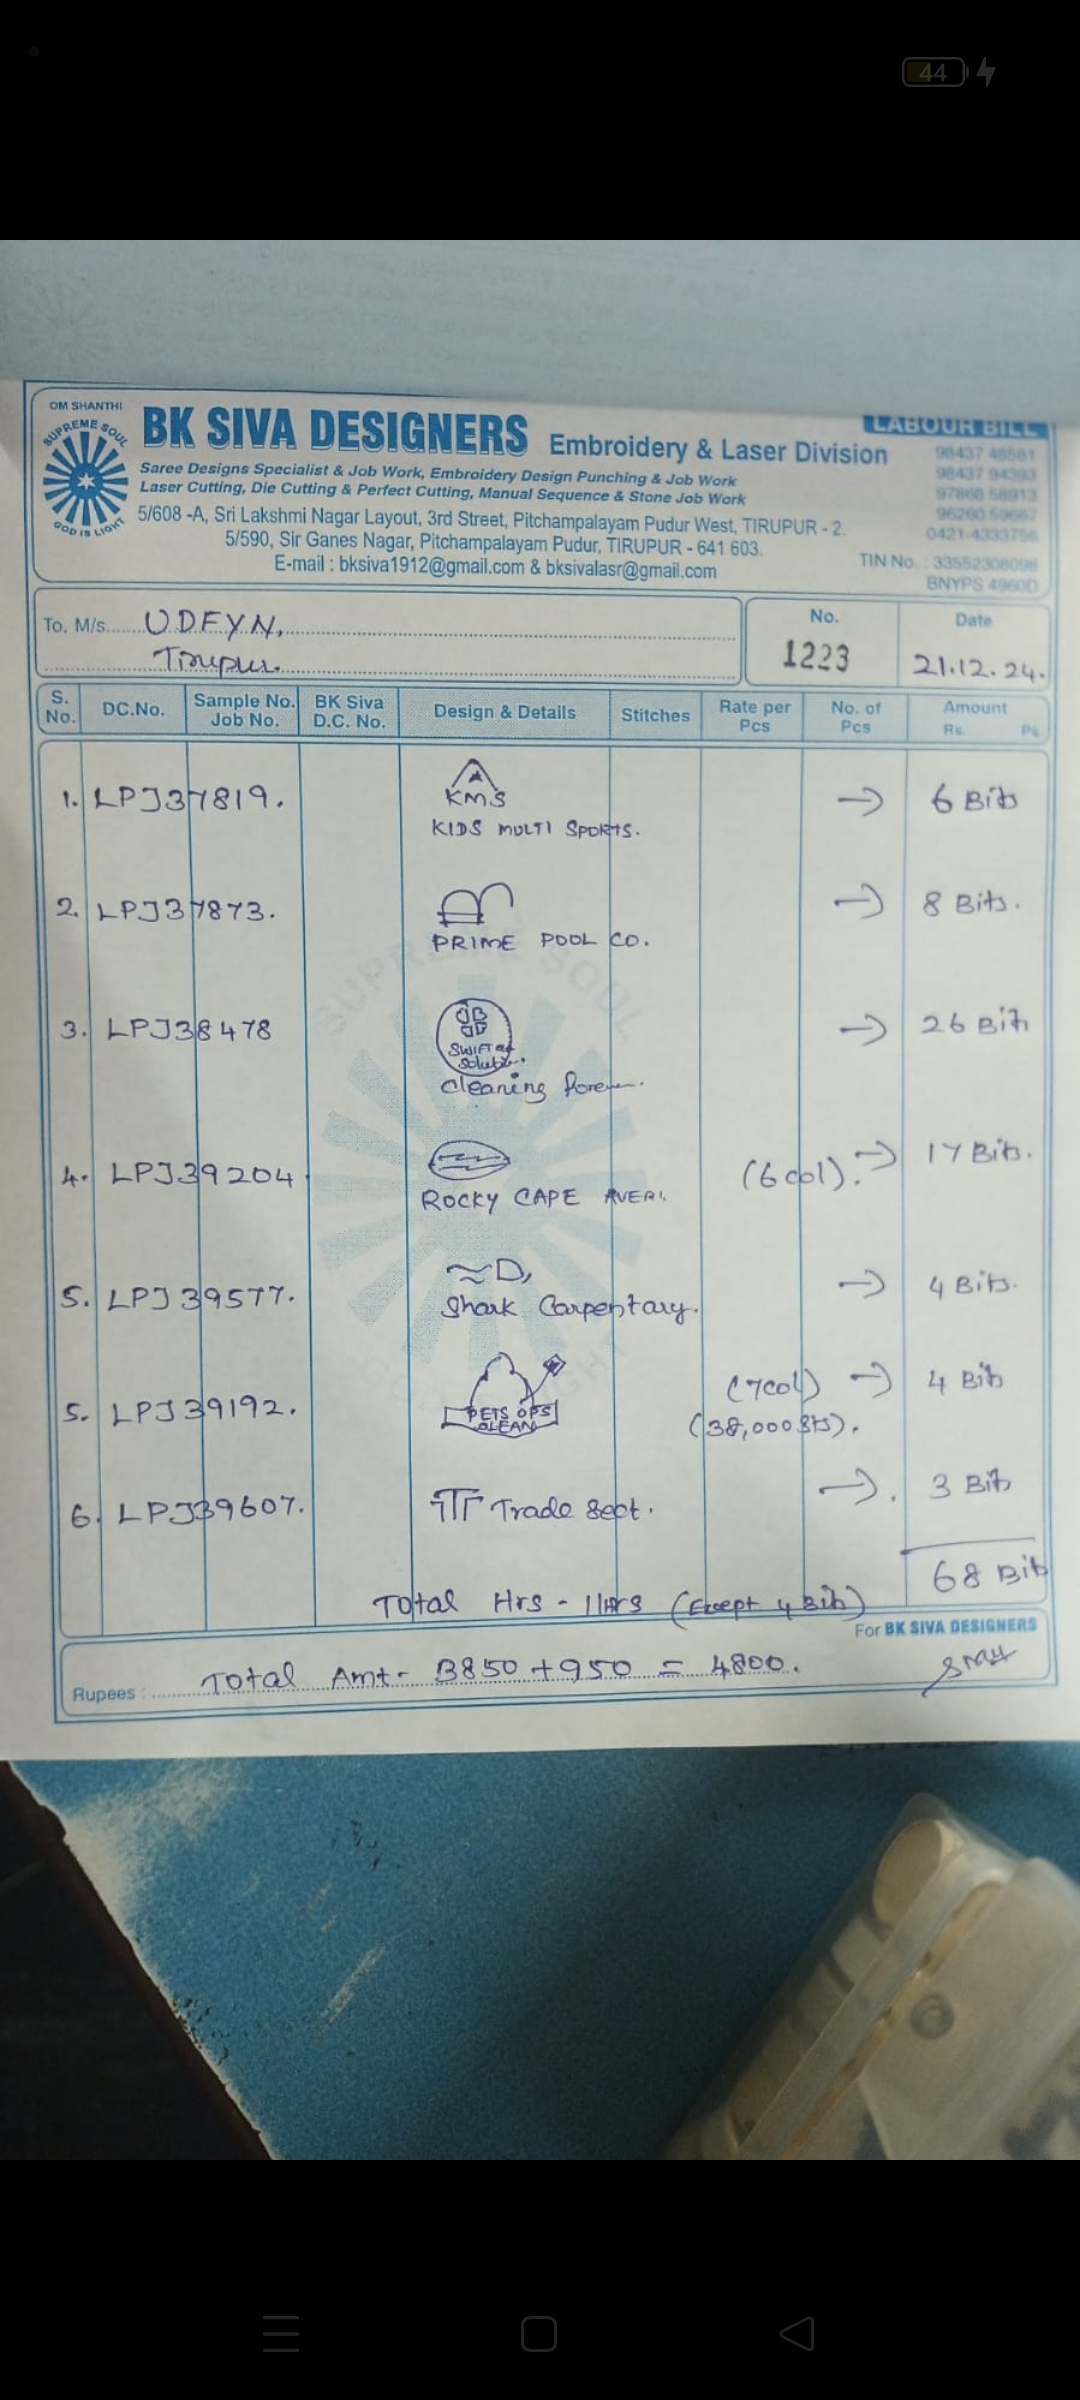 44
OM SHANTHI
SUPREME SOUL
GOD IS LIGHT
BK SIVA DESIGNERS Embroidery & Laser Division
LABOUR BILL
Saree Designs Specialist & Job Work, Embroidery Design Punching & Job Work
Laser Cutting, Die Cutting & Perfect Cutting, Manual Sequence & Stone Job Work
5/608 -A, Sri Lakshmi Nagar Layout, 3rd Street, Pitchampalayam Pudur West, TIRUPUR - 2.
5/590, Sir Ganes Nagar, Pitchampalayam Pudur, TIRUPUR - 641 603.
E-mail : bksiva1912@gmail.com & bksivalasr@gmail.com
98437 48581
98437 94393
97868 58913
96260 59687
0421-4333756
TIN No. : 33552306098
BNYPS 4960D
To. M/s. UDFYN,
Tirupur.
No.
1223
Date
21.12.24.
S. No. DC.No. Sample No. Job No. BK Siva D.C. No. Design & Details Stitches Rate per Pcs No. of Pcs Amount Rs. Ps.
1. LPJ37819. KMS → 6 Bits
KIDS MULTI SPORTS.
2. LPJ37873. → 8 Bits.
PRIME POOL CO.
3. LPJ38478 → 26 Bits
SWIFT
cleaning
4. LPJ39204 (6 col). → 17 Bits.
ROCKY CAPE AVERI.
5. LPJ39577. → 4 Bits.
Shark Carpentary.
5. LPJ39192. (7col) → 4 Bits
PETS OPS
CLEAN
(38,000 sts).
6. LPJ39607. Trade Sect. → 3 Bits
68 Bits
Total Hrs - 11 Hrs (Except 4 Bits)
For BK SIVA DESIGNERS
Rupees : Total Amt - 3850 + 950 = 4800.